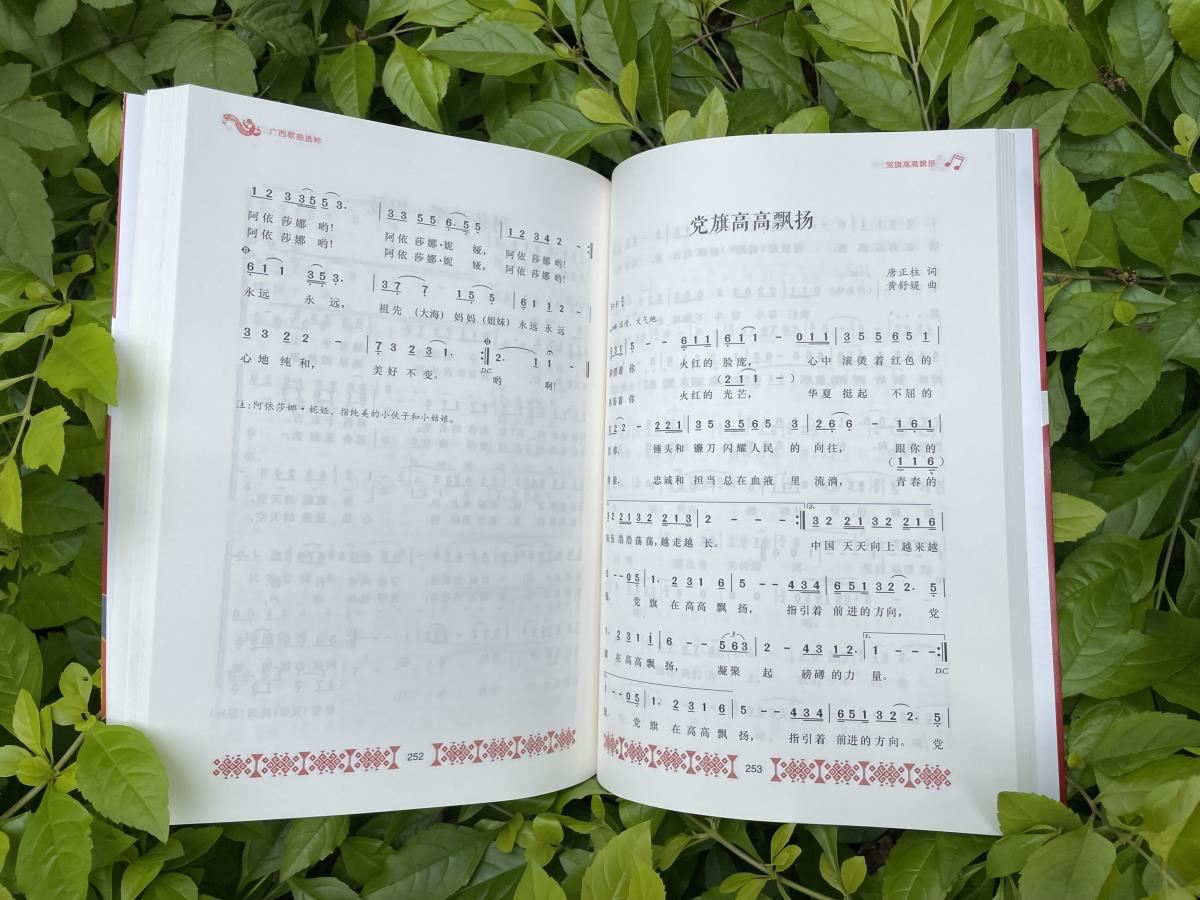 广西歌曲选粹
1 2 3 3 5 5 3. 3 3 5 5 6. 5 5 1 2 3 4 2 -
阿依 莎娜 哟! 阿依 莎娜·妮 娅, 阿依 莎娜 哟!
阿依 莎娜 哟! 阿依 莎娜·妮 娅, 阿依 莎娜 哟!
6 1 1 3 5 3. 3 7 7 1 5 5 6 1 1 2 -
永远 永远, 祖先 (大海) 妈妈 (姐妹) 永远 永远
3 3 2 2 - 7 3 2 3 1. 2. 1 1
D.C.
心地 纯和, 美好 不变。 哟 啊!
注:阿依莎娜·妮娅,指纯美的小伙子和小姑娘。
252
党旗高高飘扬
党旗高高飘扬
唐正柱 词
黄舒媞 曲
深情、大气地
5 - - 6 1 1 6 1 1 - 0 1 1 3 5 5 6 5 1
着你 火红的 脸庞, 心中 滚烫着 红色的
(2 1 1 -)
着你 火红的 光芒, 华夏 挺起 不屈的
2 2 1 3 5 3 5 6 5 3 2 6 6 - 1 6. 1
锤头和 镰刀 闪耀人民 的 向往, 跟你的
(1 1 6)
忠诚和 担当 总在血液 里 流淌, 青春的
2 1 3 2 2 1 3 2 - - - 3 2 2 1 3 2 2 1 6
浩浩荡荡,越走越 长。 中国 天天向上 越来越
- - 0 5 1. 2 3 1 6 5 - - 4 3 4 6 5 1 3 2 2. 5
党 旗 在高高 飘 扬, 指引着 前进的方向, 党
2 3 1 i 6 - - 5 6 3 2 - 4 3 1 2. 1 - - -
D.C
在高高飘 扬, 凝聚 起 磅礴的力 量。
- - 0 5 1. 2 3 1 6 5 - - 4 3 4 6 5 1 3 2 2. 5
党 旗 在高高 飘 扬, 指引着 前进的方向。 党
253